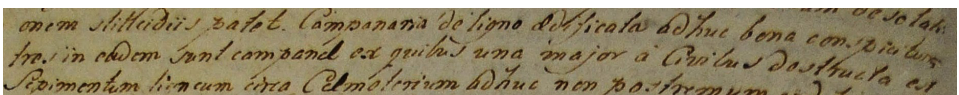 onem stillicidiis patet. Campanaria de ligno ædificata adhuc bona conspicitur
tres in eadem sunt campanæ ex quibus una major à Civibus destructa est
Sepimentum ligneum circa Cæmeterium adhuc non postremum